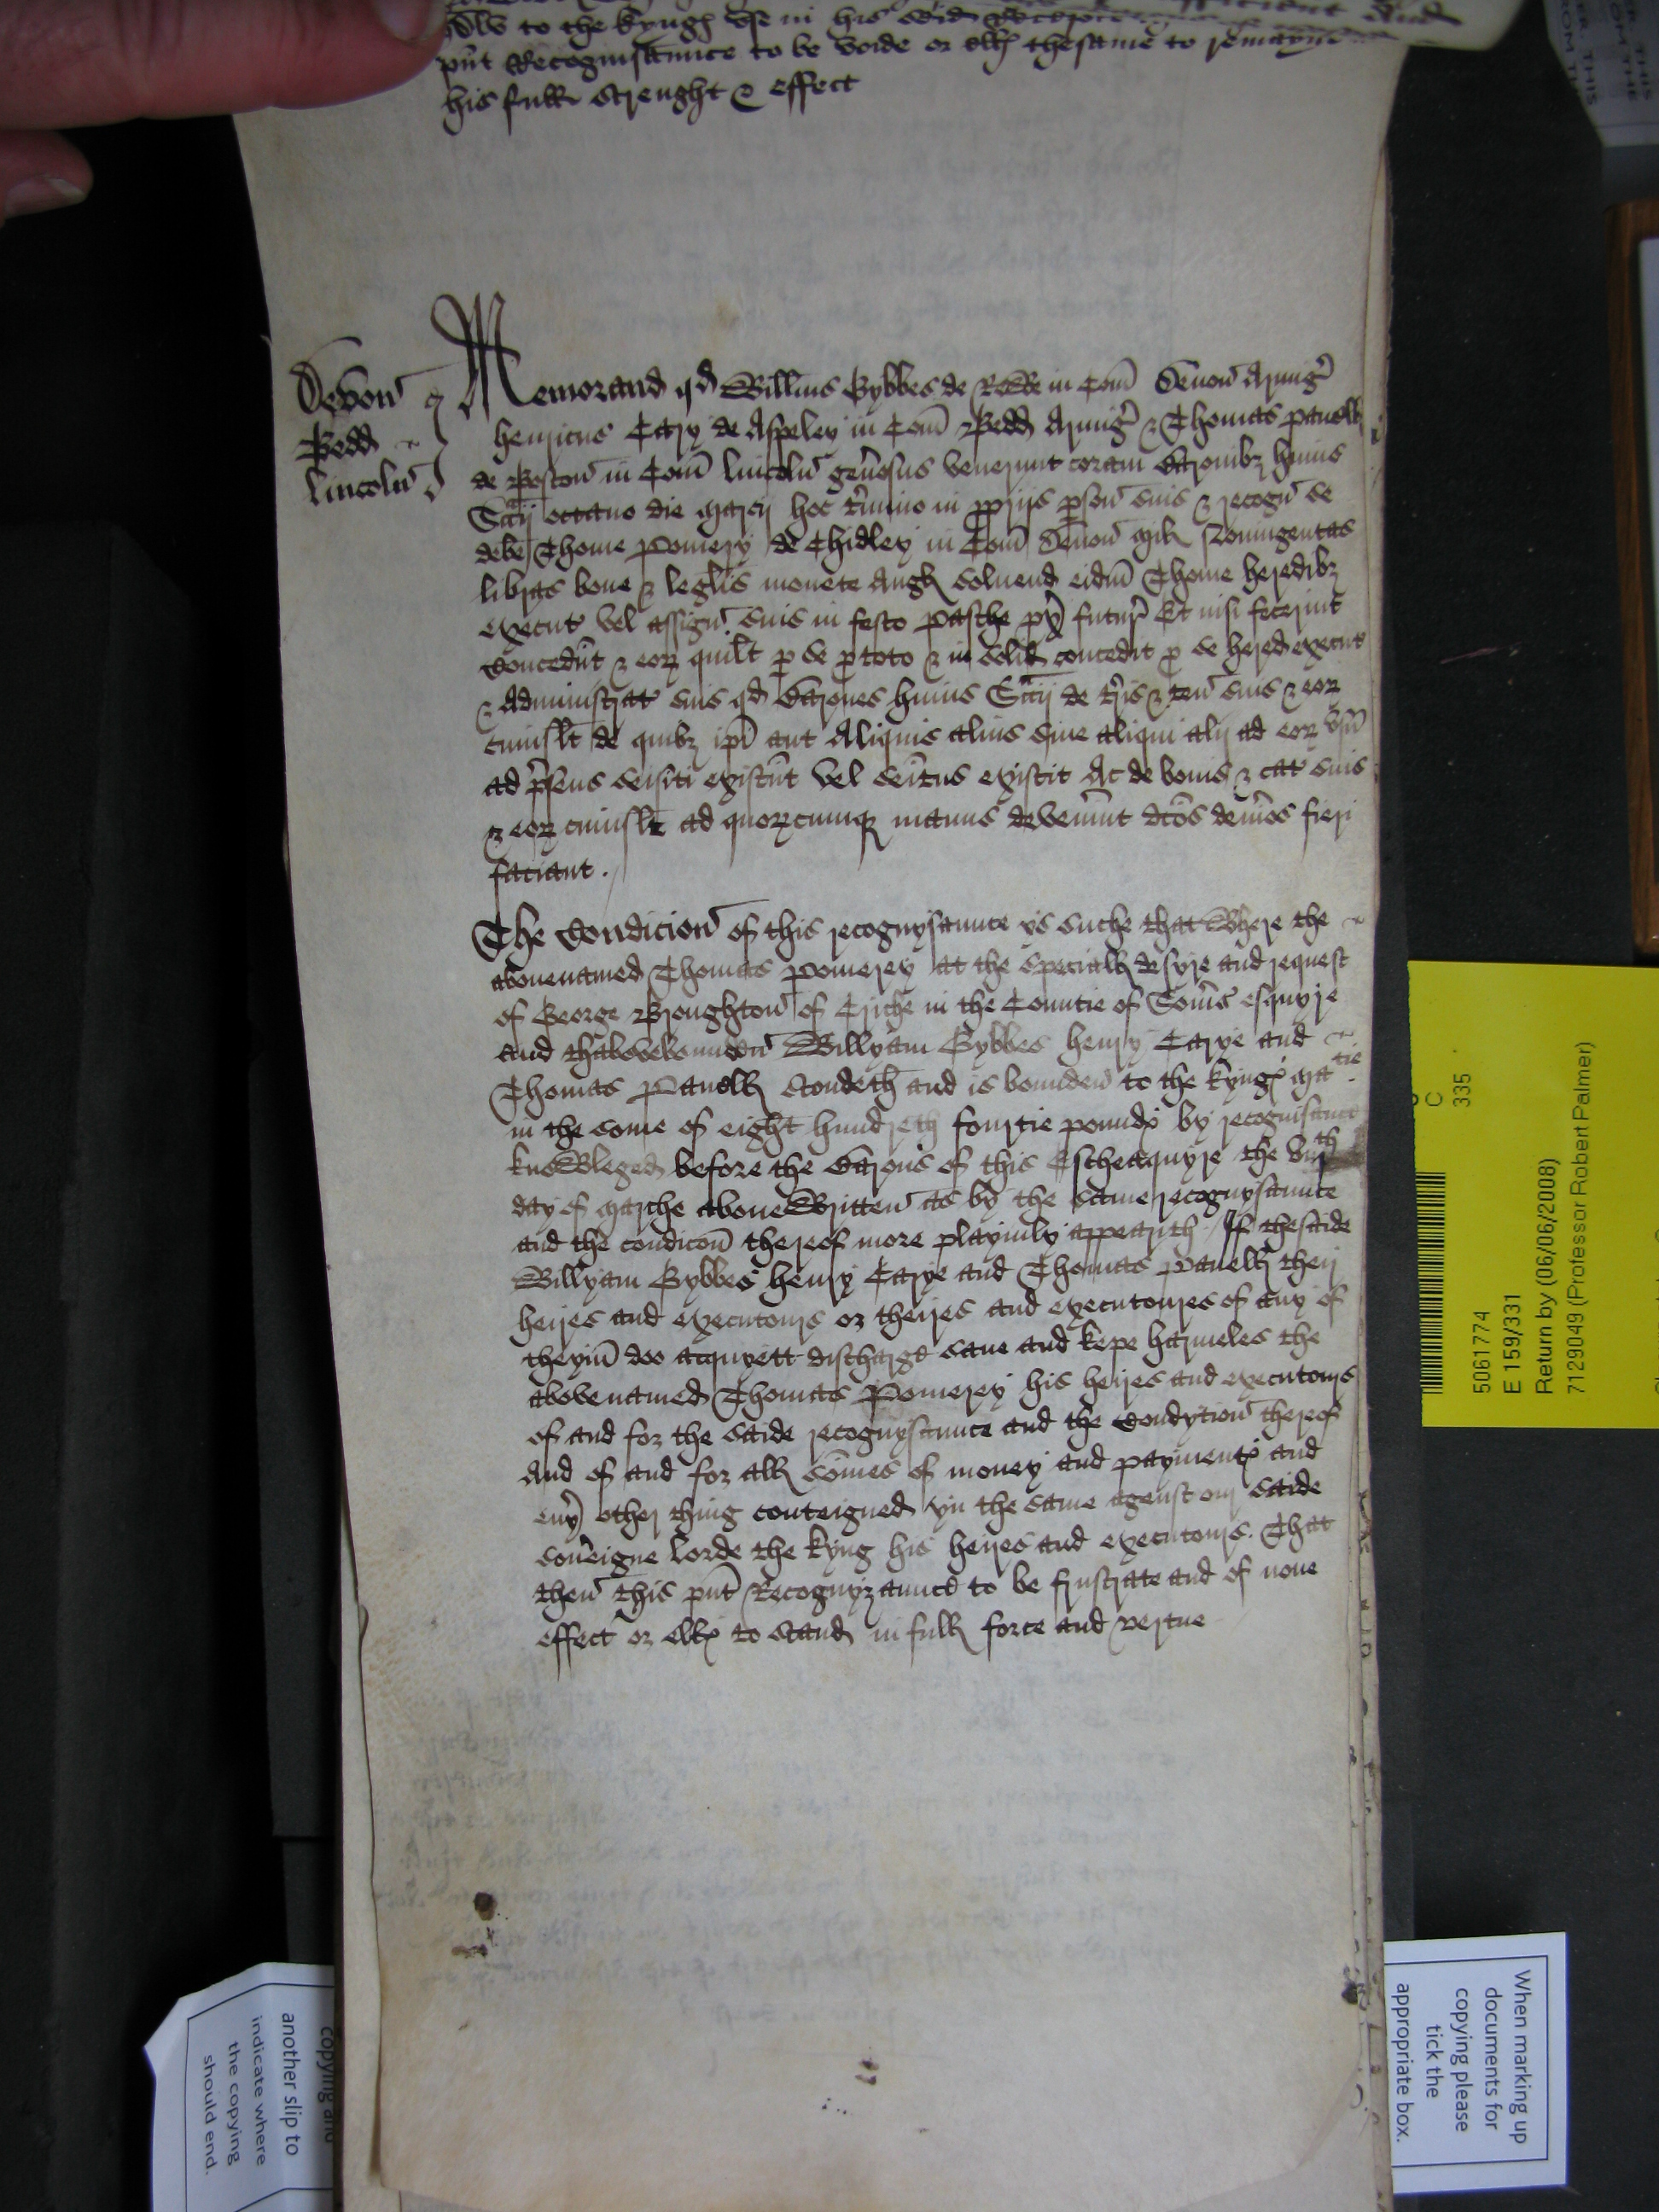 to the kyngꝭ vse in his said Receipte
pñt Recognisaunce to be voide or ellꝭ thesame to remayne
his full strenght & effect
Devon̄
Bedd
Lincoln̄
Memorand qd Willms Gybbes de in Com̄ Devon̄ Armigꝰ
henricus Cary de Aspeley in Com̄ Bedd Armigꝰ & Thomas Pauell
de Boston̄ in Com̄ lincoln̄ gen̄osus venerunt coram Baronibꝫ huius
Sccij octauo die Marcij hoc t̄mino in pprijs pson̄ suis & recogn̄ se
debe Thome Pomery de Chidley in Com̄ Devon̄ Mil Noningentas
libras bone & leglis monete Angl soluend eidm̄ Thome heredibꝫ
execut vel assign̄ suis in festo Pasche px̄ futur̄ Et nisi fecerint
Concedūt & eoꝝ quilt p se p toto & in solid concedit p se hered execut
& Administrat suis qd Barones huius Sccij de t̄ris & ten̄ suis & eoꝝ
cuiuslt de quibꝫ ipi aut Aliquis alius siue aliqui alij ad eoꝝ vsū
ad p̄sens seisiti existūt vel seitus existit Ac de bonis & cat suis
& eoꝝ cuiuslt ad quoꝝcumqꝫ manus deven̄int dcōs den̄ios fieri
faciant.
The Condicion̄ of this recognysaunce ys suche that Where the
abouenamed Thomas Pomerey at the speciall desyre and request
of George Broughton̄ of Criche in the Countie of Som̄s esquyre
and thabovebounden̄ Willyam Gybbes henry Carye and
Thomas Pauell Stondeth and is bounden̄ to the kyngꝭ Matie
in the some of eight hundreth fourtie poundꝭ by recognisaunce
knoWleged before the Barons of this Eschequyre the viijth
day of Marche aboueWritten̄ as by the same recognysaunce
and the condicōn thereof more playnly appearith. If thesaide
Willyam Gybbes henry Carye and Thomas Pauell their
heires and executours or theires and executoures of any of
theym̄ doo acquyett discharge saue and kepe harmeles the
abovenamed Thomas Pomerey his heires and executours
of and for the saide recognysaunce and the Condytion̄ thereof
And of and for all sōmes of money and paymentꝭ and
eūy other thing conteigned yn the same agenst our saide
soūeigne lorde the kyng his heires and executours. That
then̄ this pñt Recognyzaunce to be frustrate and of none
effect or ellꝭ to stand in full force and vertue
C
335
5061774
E 159/331
Return by (06/06/2008)
7129049 (Professor Robert Palmer)
When marking up
documents for
copying please
tick the
appropriate box.
copying and
another slip to
indicate where
the copying
should end.